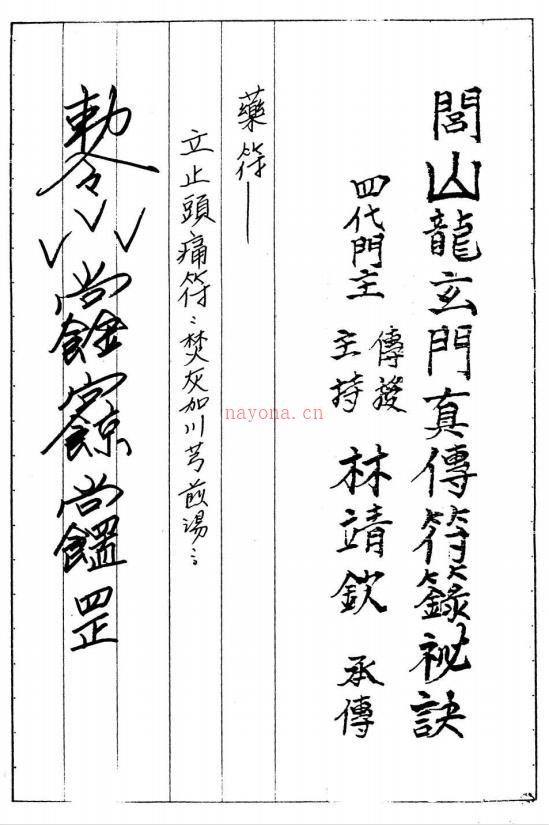 閭山龍玄門真傳符籙祕訣
四代門主
傳授
主持
林靖欽
承傳
藥符——
立止頭痛符:焚灰加川芎煎湯:
敕令
罡
nayona.cn